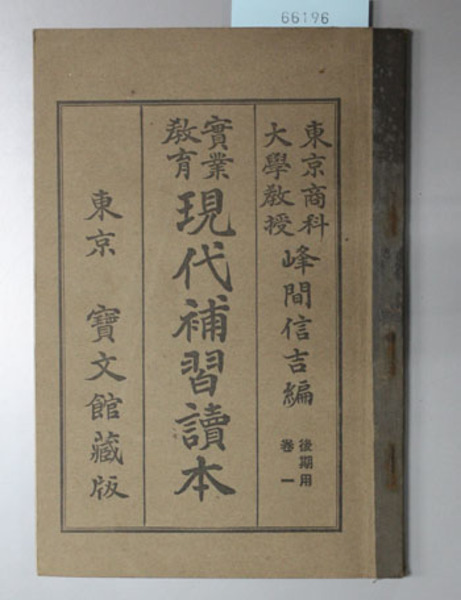 66196
東京商科
大學教授
峰間信吉編
後期用
卷一
實業
敎育
現代補習讀本
東京 寶文館藏版